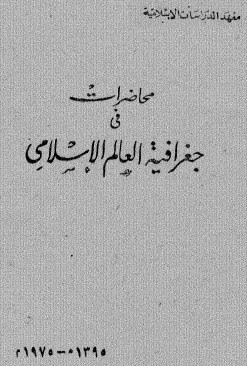 معهد الدراسات الإسلامية
محاضرات
فى
جغرافية العالم الإسلامى
١٣٩٥ﻫ - ١٩٧٥م